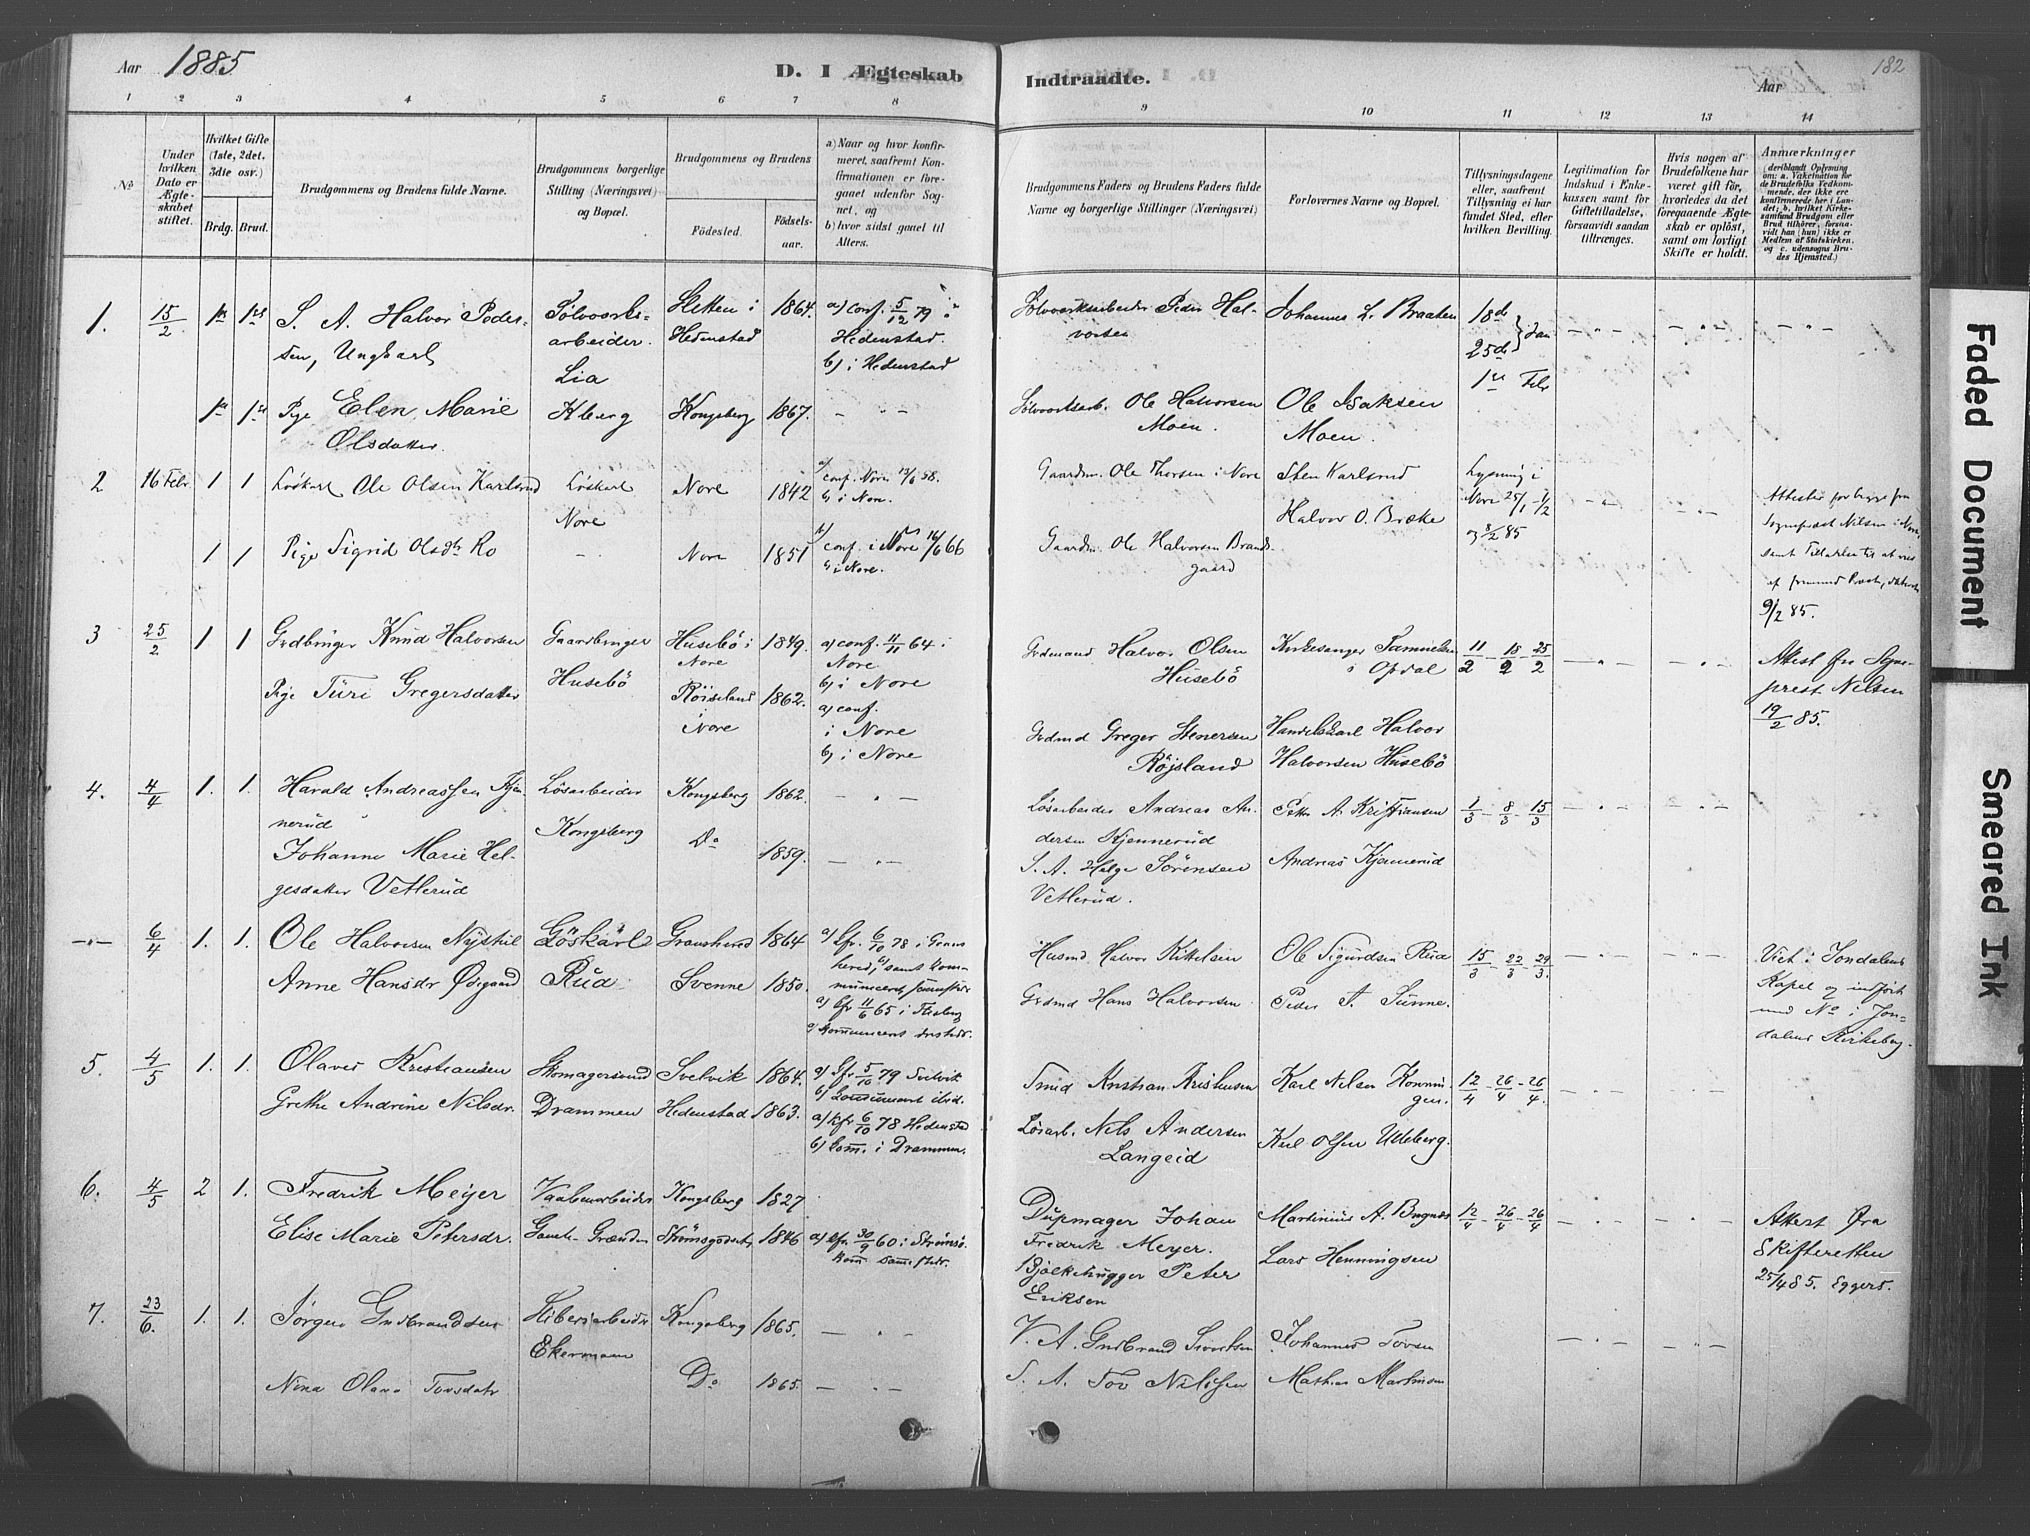 Aar 1885
D. I Ægteskab Indtraadte.
Aar
182
1 2 3 4 5 6 7 8 9 10 11 12 13 14
No
Under hvilken Dato er Ægteskabet stiftet.
Hvilket Gifte (1ste, 2det, 3die osv.)
Brdg. Brud.
Brudgommens og Brudens fulde Navne.
Brudgommens borgerlige Stilling (Næringsvei) og Bopæl.
Brudgommens og Brudens
Födested.
Födselsaar.
a) Naar og hvor konfirmeret, saafremt Konfirmationen er foregaaet udenfor Sognet, og
b) hvor sidst gaaet til Alters.
Brudgommens Faders og Brudens Faders fulde Navne og borgerlige Stillinger (Næringsvei)
Forlovernes Navne og Bopæl.
Tillysningsdagene eller, saafremt Tillysning ei har fundet Sted, efter hvilken Bevilling.
Legitimation for Indskud i Enkekassen samt for Giftetilladelse, forsaavidt saadan tiltrænges.
Hvis nogen af Brudefolkene har været gift för, hvorledes da det foregaaende Ægteskab er oplöst, samt om lovligt Skifte er holdt.
Anmærkninger
(deriblandt Oplysning om: a. Vakcination for de Brudefolks Vedkommende, der ikke ere konfirmerede her i Landet; b. hvilket Kirkesamfund Brudgom eller Brud tilhörer, forsaavidt han (hun) ikke er Medlem af Statskirken, og c. udensogns Brudes Hjemsted.)
1. 15/2 S. A. Halvor Pedersen, Ungkarl
Sölvverksarbeider. Lia
Sletten i Hedenstad 1864.
a) conf. 5/12 79 i Hedenstad.
b) i Hedenstad
Sölvverksarbeider Peder Halvorsen
Johannes L. Braaten
18de 25de } Jan
1ste Febr
Pige Elen Marie Olsdatter.
Kberg Kongsberg 1867.
Sölvverksarb. Ole Halvorsen Moen.
Ole Isaksen Moen.
2 16 Febr. 1 1 Löskarl Ole Olsen Karlsrud
Löskarl Nore
Nore 1842
a) conf. Nore 13/6 58.
b) i Nore.
Gaardm. Ole Thorsen i Nore
Sten Karlsrud
Lysning i Nore 25/1 - 1/2 og 8/2 85
Attester for begge fra Sognepræst Nilsen i Nore,
9/2 85.
1 1 Pige Sigrid Olsdtr Ro
Nore 1851
conf. i Nore 16/6 66
b) i Nore.
Gaardm. Ole Halvorsen Brandsgaard
Halvor O. Bræke
3 25/2 1 1 Grdbruger Knud Halvorsen
Gaardbruger Husebö
Husebö i Nore 1849.
a) conf. 11/11 64 i Nore
b) i Nore
Grdmand Halvor Olsen Husebö
Kirkesanger Samuelsen i Opdal
11/2 - 18/2 - 25/2
Attest fra Sgneprest Nilsen 19/2 85.
Pige Turi Gregersdatter
Röiseland i Nore 1862.
a) conf. i Nore
b) i Nore
Grdmd Greger Stenersen Röjsland
Handelskarl Halvor Halvorsen Husebö
4. 4/4 1. 1. Harald Andreassen Kjennerud
Lösarbeider Kongsberg
Kongsberg 1862.
Lösarbeider Andreas Andersen Kjennerud
Petter A. Kristiansen
1/3 - 8/3 - 15/3
Johanne Marie Helgesdatter Vetlerud
Do 1859.
S. A. Helge Sörensen Vetlerud.
Andreas Kjennerud
—"— 6/4 1. 1. Ole Halvorsen Nyshul
Löskarl Rud
Gransherred 1864
a) Cfr. 6/10 78 i Gransherred, b) samt kommuniceret sammesteds
Husmd Halvor Kittelsen
Ole Sigurdsen Rud
15/3 - 22/3 - 29/3.
Viet i Jondalens Kapel og indfört med No i Jondalens Kirkebog.
Anne Hansdr Ödegaard
Svenne 1850.
a) Cfr 11/6 65 i Flesberg
Grdmd Hans Halvorsen
Peder T. Sunne.
5. 4/5 1. 1. Olaves Kristiansen
Skomagersvend Drammen
Svelvik 1864.
a) Cfr. 5/10 79 Svelvik
b) Communiceret ibid.
Smed Kristian Kristensen
Karl Nilsen Konnnigen.
12/4 - 26/4 - 26/4.
Grethe Andrine Nilsdr.
Hedenstad 1863.
a) Kfr 6/10 78 Hedenstad
b) Kom. i Drammen.
Lösarb. Nils Andersen Langeid
Karl Olsen Udeberg.
6. 4/5 2 1. Fredrik Meyer
Vaabenarbeider Gamle Grænden
Kongsberg 1827
Dupmager Johan Fredrik Meyer.
Martinius A. Bugnæs
12/4 - 26/4 - 26/4
Attest fra Skifteretten 25/4 85. Eggers.
Elise Marie Petersdr.
Strömsgodset 1846
a) kfr. 30/9 60 i Strömsö. Kom samesteds.
Bjelkehugger Peter Eriksen
Lars Henningsen
7. 23/6. 1. 1. Jörgen Gudbrandsen
Sliberiarbeider Ekermoen
Kongsberg 1865.
V. A. Gudbrand Sivertsen
Johannes Tovsen
Nina Olava Tovsdatr
Do 1865.
S. A. Tov Nilssen
Mathias Martinsen
Faded Document
Smeared Ink